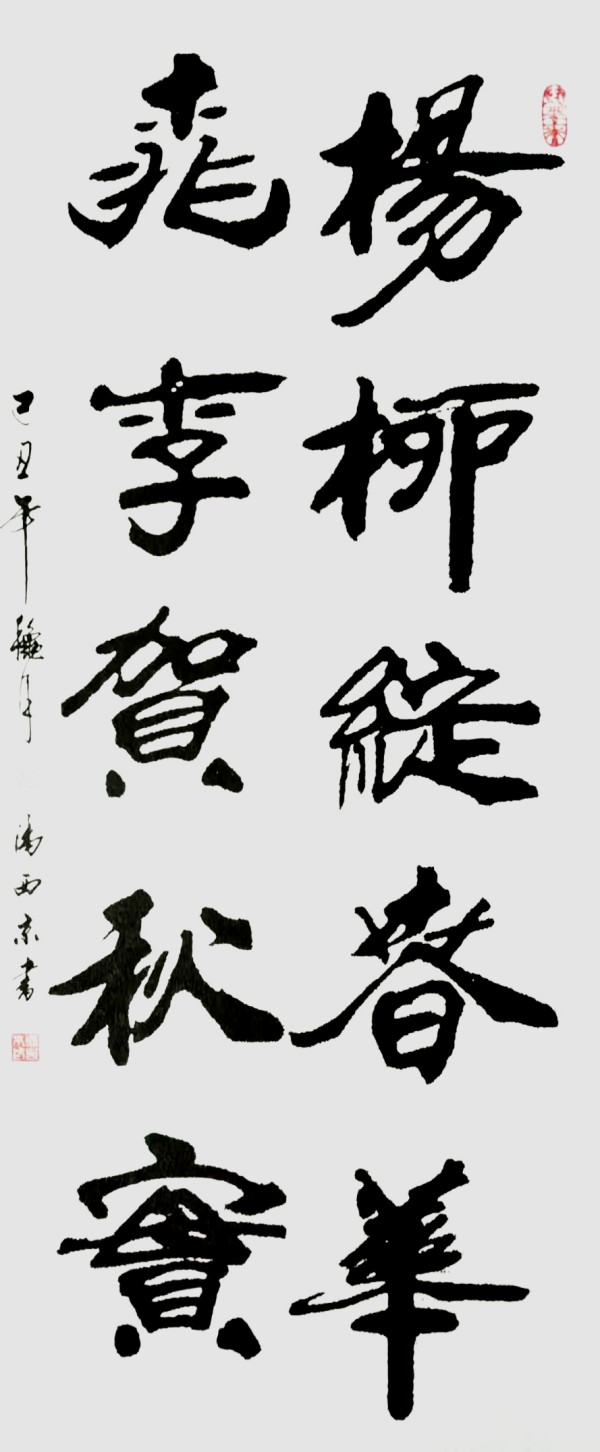 楊柳綻春華
桃李賀秋實
己丑年 馮西京書